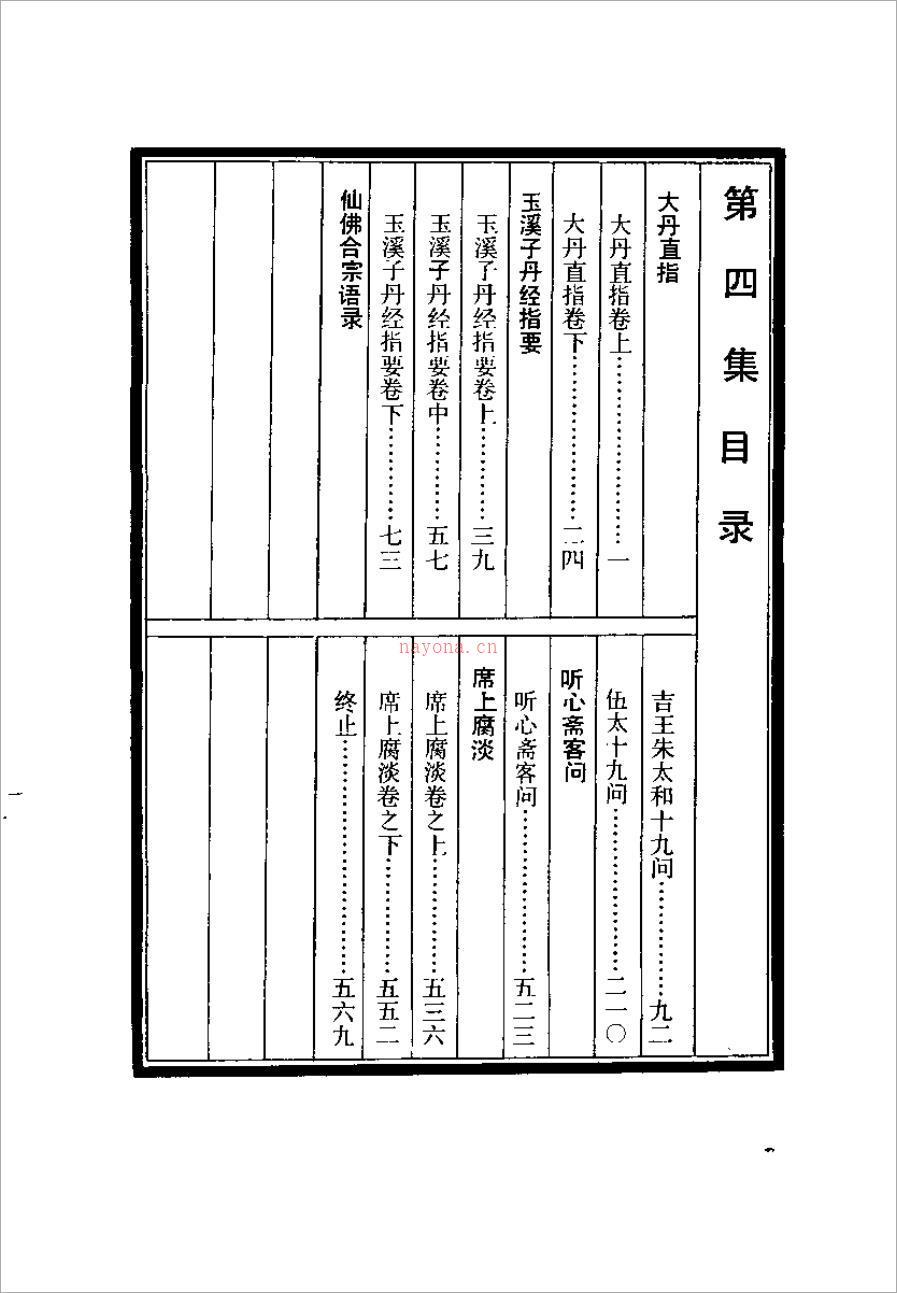 第四集目录
大丹直指
大丹直指卷上……………………一
大丹直指卷下……………………二四
玉溪子丹经指要
玉溪子丹经指要卷上……………三九
玉溪子丹经指要卷中……………五七
玉溪子丹经指要卷下……………七三
仙佛合宗语录
吉王朱太和十九问………………九二
伍太十九问………………………二一〇
听心斋客问
听心斋客问………………………五二三
席上腐淡
席上腐淡卷之上…………………五三六
席上腐淡卷之下…………………五五二
终止………………………………五六九
nayona.cn
一